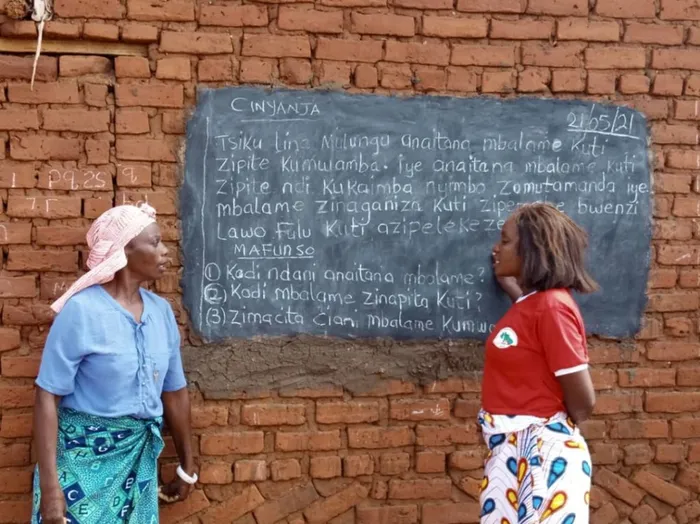 CINYANJA
21/05/21
Tsiku lina Mulungu anaitana mbalame kuti
zipite kumulamba. iye anaitana mbalame kuti
zipite ndi kukaimba nyimbo zomutamanda iye.
mbalame zinaganiza kuti bwenzi
lawo fulu kuti azipelekeze
MAFUNSO
① Kodi ndani anaitana mbalame?
② Kodi mbalame zinapita kuti?
③ Zimacita ciani mbalame